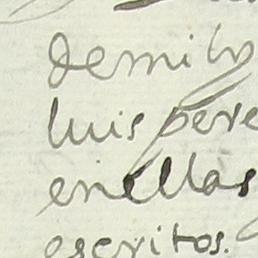 demil y
luis pere
enellas
escritos.